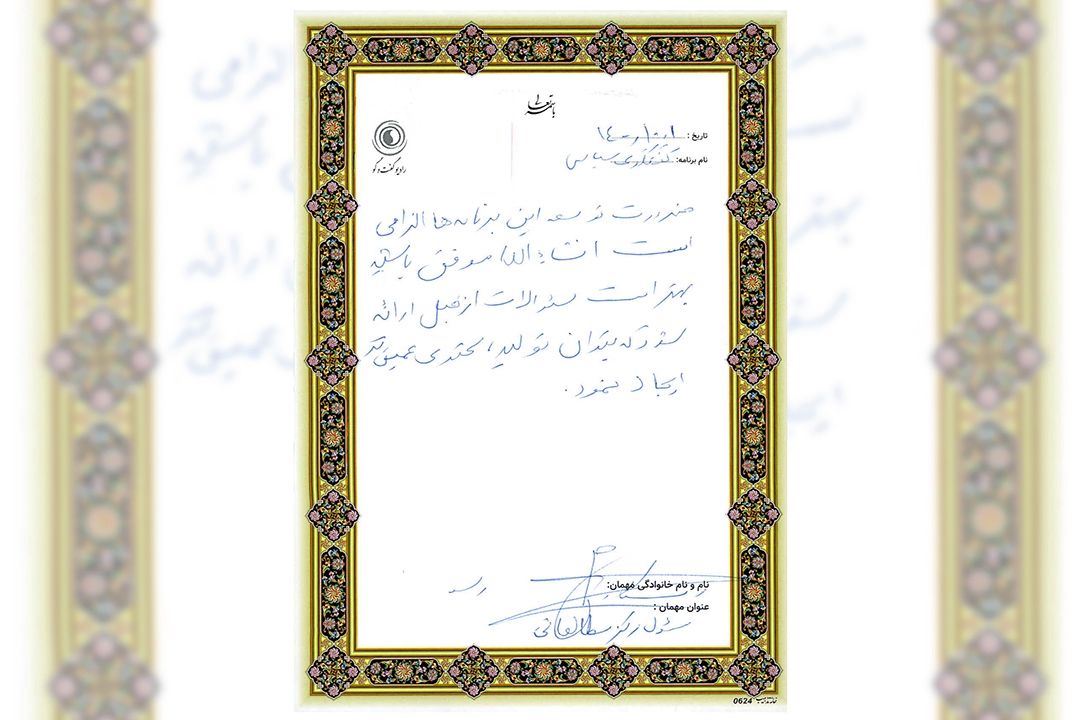 باسمه تعالی
رادیو گفت و گو
تاریخ : ۱۴۰۰/۱۰/۱
نام برنامه: گفتگوی سیاسی
ضرورت توسعه این برنامه‌ها الزامی
است انشاءالله موفق باشید
بهتر است سئوالات از قبل ارائه
شود که بتوان تولید، محتوی عمیق‌تر
ایجاد نمود.
نام و نام خانوادگی مهمان:
عنوان مهمان :
مسئول مرکز مطالعاتی
0624